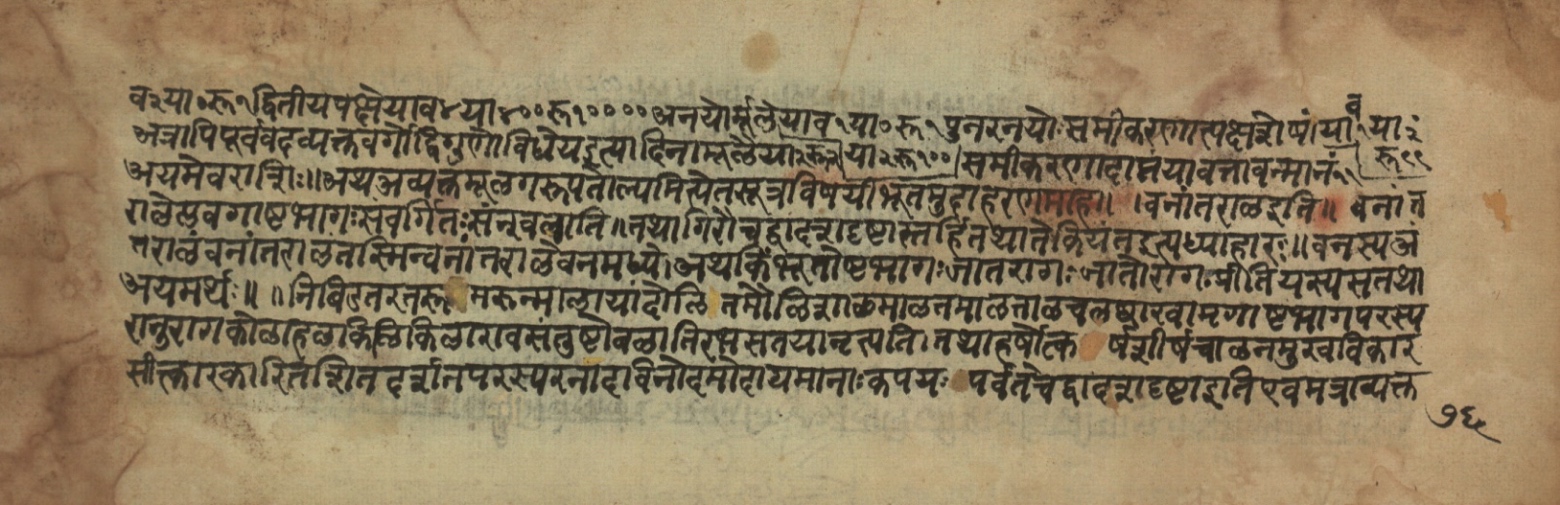 व२या०रू१द्वितीयपक्षेयाव४या४००रू१००००अनयोर्मूलेयाव१या०रू१पुनरनयोःसमीकरणात्पक्षशेषंया१या२
अत्रापिपूर्ववदव्यक्तवर्गाद्विगुणोविधेयइत्यादिनामूलेया१रू१या२रू१००समीकरणादाप्तंयावत्तावन्मानं रू९९
अयमेवराशिः॥अथअव्यक्तमूलगरूपतोल्पमित्येतत्सूत्रविषयीभूतमुदाहरणमाह॥ ।वनांतराळइति॥ वनांत
राळेप्लवगाष्टभागःसंवर्गितःसंन्वल्गति॥तथागिरौचद्वादशदृष्टास्तर्हितथातेकियंतइत्यध्याहारः॥वनस्यअं
तराळंवनांतराळंतस्मिन्वनांतराळेवनमध्ये।अथकिंभूतोष्टभागःजातरागःजातोरागःप्रीतिर्यस्यसतथा
अयमर्थः॥ ॥निबिडतरतरू मरून्मालायांदोलि तमौळिशाळमाळतमाळताळचलच्छाखामृगाष्टभागपरस्प
रानुरागकोळाहळकिळिकिळारावसंतुष्टोबळातिरभसतयानृत्यति।तथाहर्षोत्क र्षशीर्षचाळनमुखविकार
सीत्कारकारितशितदर्शनपरस्परनादविनोदमोदायमानाःकपयः पर्वतेचद्वादशदृष्टाइतिएवमत्राव्यक्त
७६